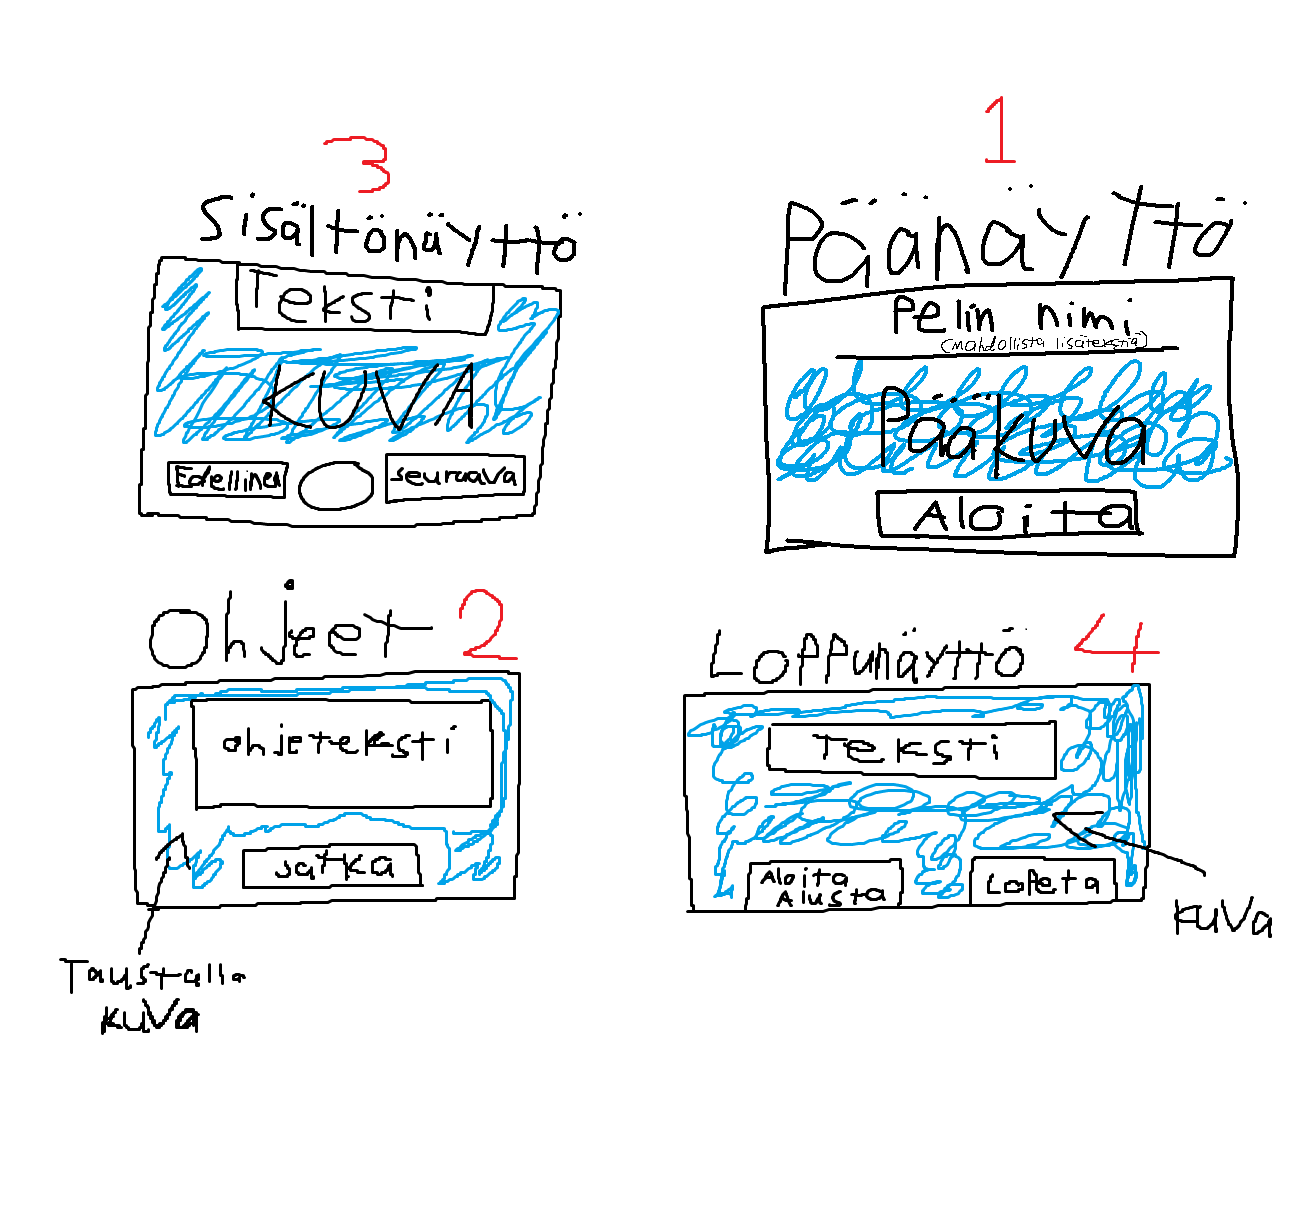 3
Sisältönäyttö
Teksti
KUVA
Edellinen
seuraava
1
Päänäyttö
Pelin nimi
(Mahdollista lisätekstiä)
Pääkuva
Aloita
Ohjeet 2
ohjeteksti
jatka
Taustalla
kuva
Loppunäyttö 4
Teksti
Aloita
Alusta
Lopeta
kuva